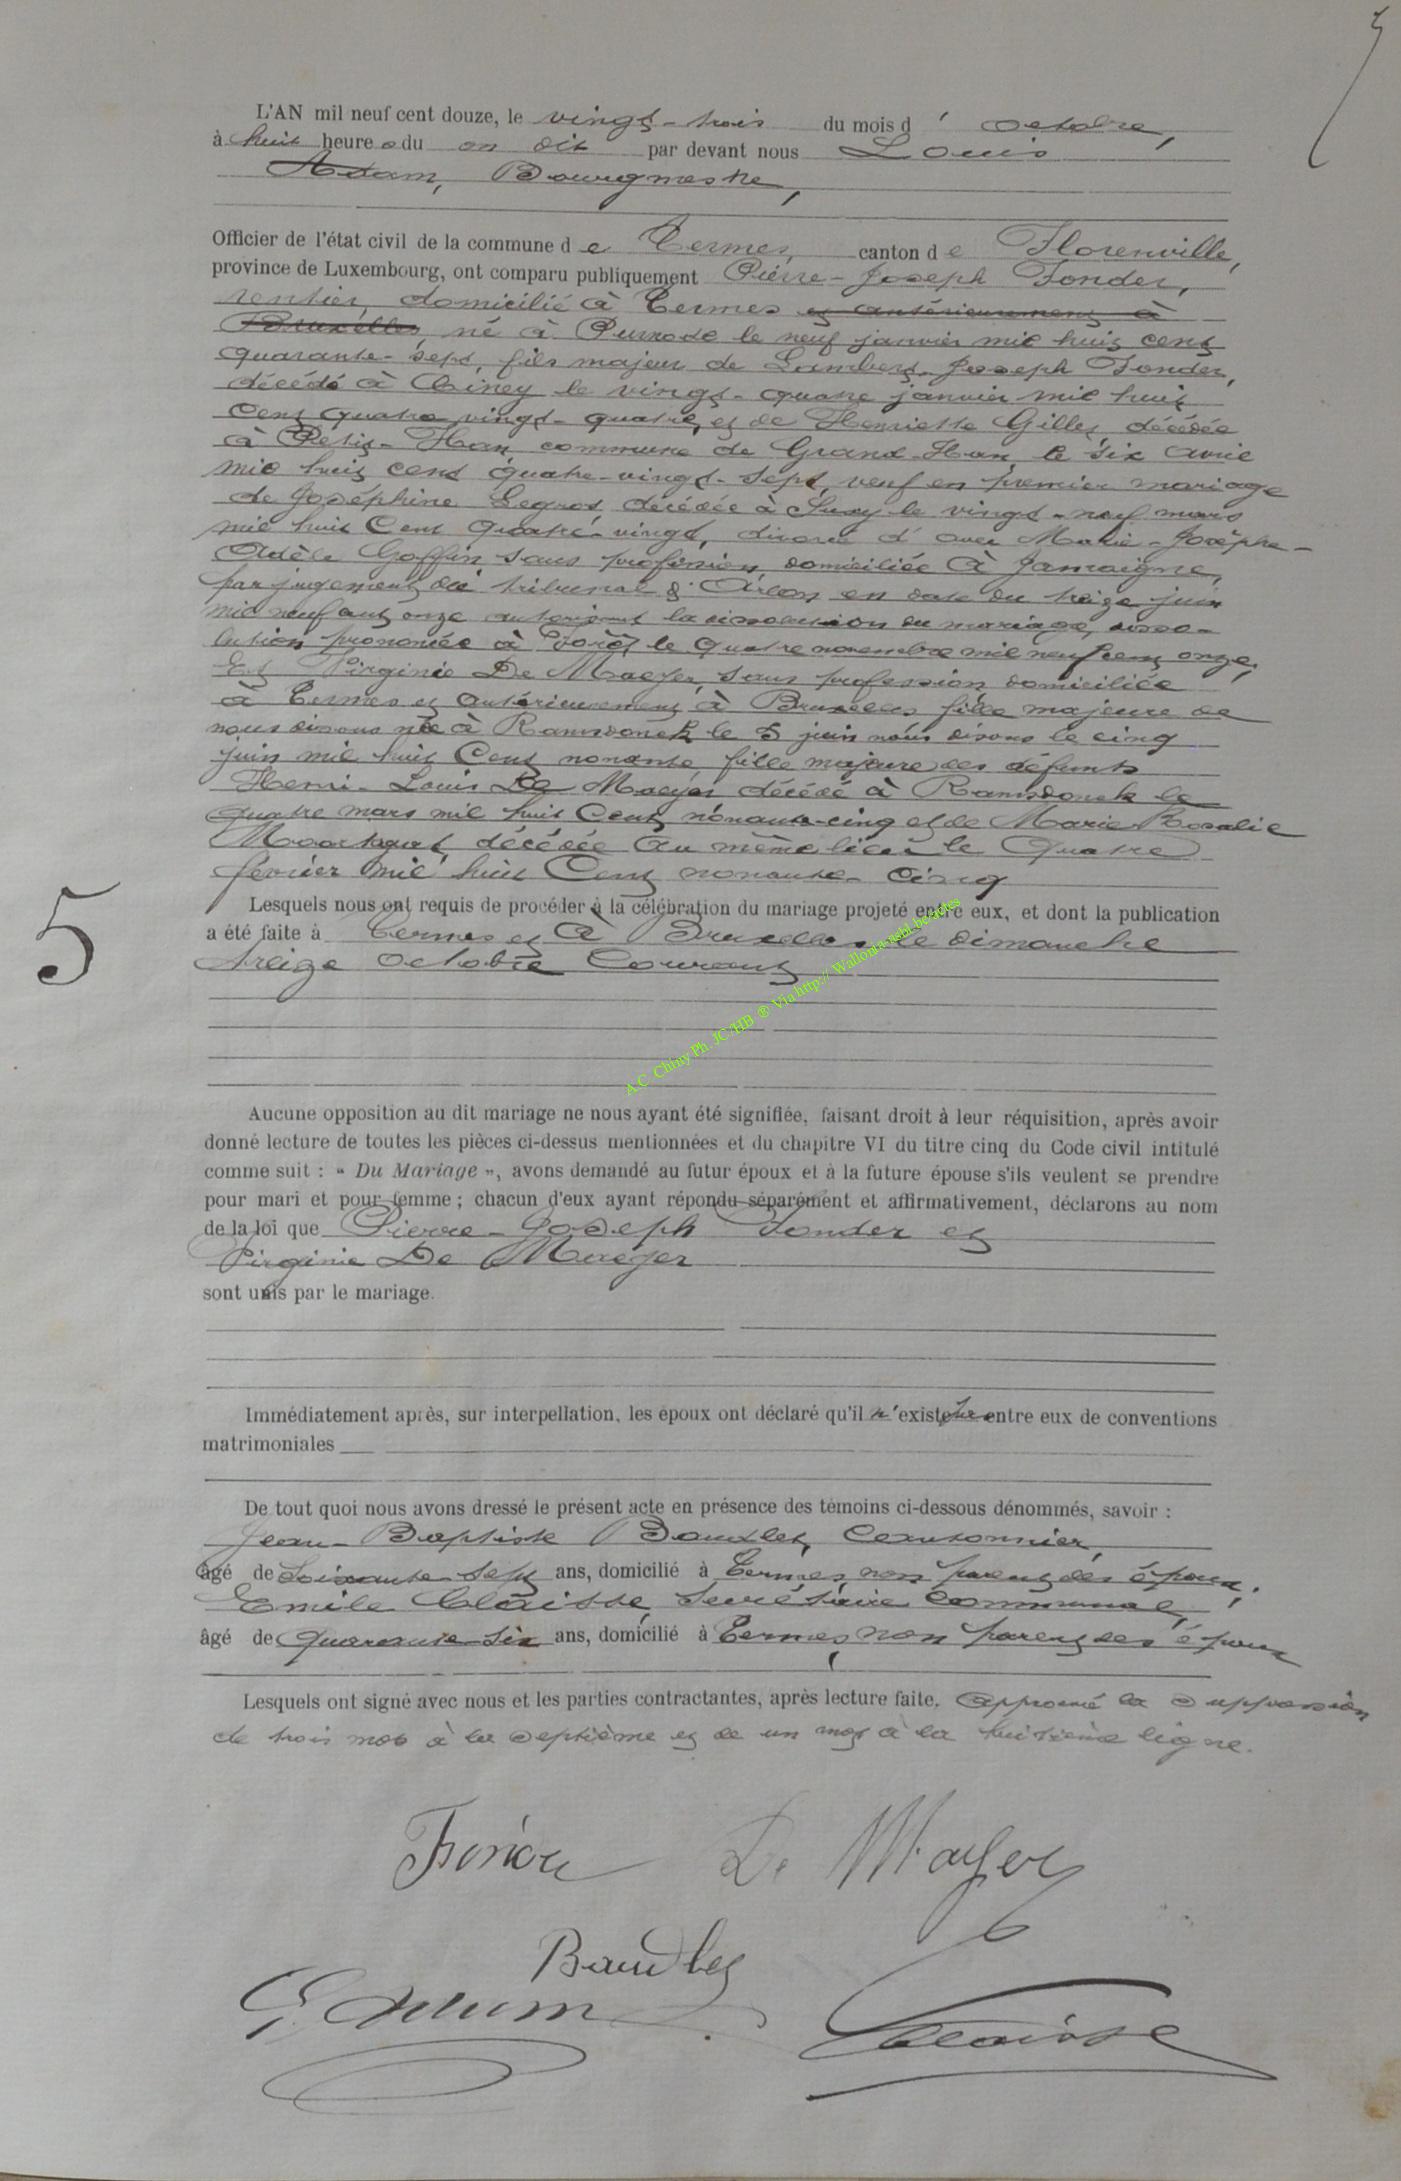 5
L'AN mil neuf cent douze, le vingt-trois du mois d' octobre,
à huit heures du on dit par devant nous Louis
Adam, Bourgmestre,
Officier de l'état civil de la commune de Termes, canton de Florenville,
province de Luxembourg, ont comparu publiquement Pierre-Joseph Fonder,
rentier, domicilié à Termes et antérieurement à
Bruxelles, né à Purnode le neuf janvier mil huit cent
quarante-sept, fils majeur de Lambert-Joseph Fonder,
décédé à Ciney le vingt-quatre janvier mil huit
cent quatre vingt-quatre, et de Henriette Gilles, décédée
à Petit-Han, commune de Grand-Han, le six avril
mil huit cent quatre-vingt-sept, veuf en premier mariage
de Joséphine Legros décédée à Suxy le vingt-neuf mars
mil huit cent quatre-vingt, divorcé d' avec Marie-Josèphe-
Adèle Goffin sans profession, domiciliée à Jamoigne,
par jugement du tribunal d'Arlon en date du treize juin
mil neuf cent onze autorisant la dissolution du mariage, disso-
lution prononcée à le quatre novembre mil neuf cent onze,
Et Virginie De Maeyer, sans profession, domiciliée
à Termes et antérieurement à Bruxelles fille majeure de
nous disons née à Ramsdonck le 5 juin nous disons le cinq
juin mil huit cent nonante, fille majeure des défunts
Henri-Louis De Maeyer décédé à Ramsdonck le
quatre mars mil huit cent nonante-cinq et de Marie-Rosalie
décédée au même lieu le quatre
février mil huit cent nonante-cinq
Lesquels nous ont requis de procéder à la célébration du mariage projeté entre eux, et dont la publication
5
a été faite à Termes et à Bruxelles le dimanche
treize octobre courant
A.C. Chiny Ph. JC/HB ® Via http:// Wallonia-asbl.be/actes
Aucune opposition au dit mariage ne nous ayant été signifiée, faisant droit à leur réquisition, après avoir
donné lecture de toutes les pièces ci-dessus mentionnées et du chapitre VI du titre cinq du Code civil intitulé
comme suit : « Du Mariage », avons demandé au futur époux et à la future épouse s'ils veulent se prendre
pour mari et pour femme ; chacun d'eux ayant répondu séparément et affirmativement, déclarons au nom
de la loi que Pierre-Joseph Fonder et
Virginie De Maeyer
sont unis par le mariage.
Immédiatement après, sur interpellation, les époux ont déclaré qu'il n'existe pas entre eux de conventions
matrimoniales
De tout quoi nous avons dressé le présent acte en présence des témoins ci-dessous dénommés, savoir :
Jean-Baptiste Baudlet, Cantonnier,
âgé de soixante-sept ans, domicilié à Termes, non parent des époux,
Emile Claisse, secrétaire communal,
âgé de quarante-six ans, domicilié à Termes, non parent des époux
Lesquels ont signé avec nous et les parties contractantes, après lecture faite. Approuvé la suppression
de trois mots à la septième et de un mot à la huitième ligne.
Fonder De Mayer
Baudlet
Adam Claisse